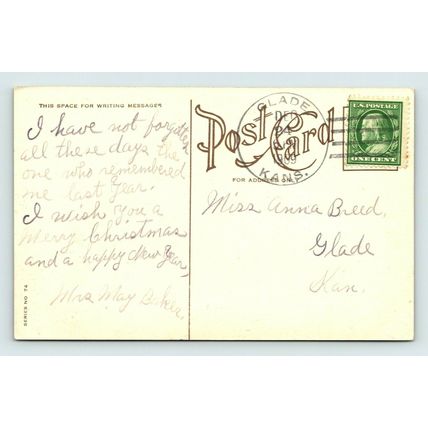 THIS SPACE FOR WRITING MESSAGES
Post Card
FOR ADDRESS ONLY
GLADE
DEC
24
KANS.
U.S. POSTAGE
ONE CENT
I have not forgotten
all these days the
one who remembered
me last year.
I wish you a
Merry Christmas
and a happy New Year,
Mrs May Baker.
Miss Anna Breed,
Glade
Kan.
SERIES NO. 74